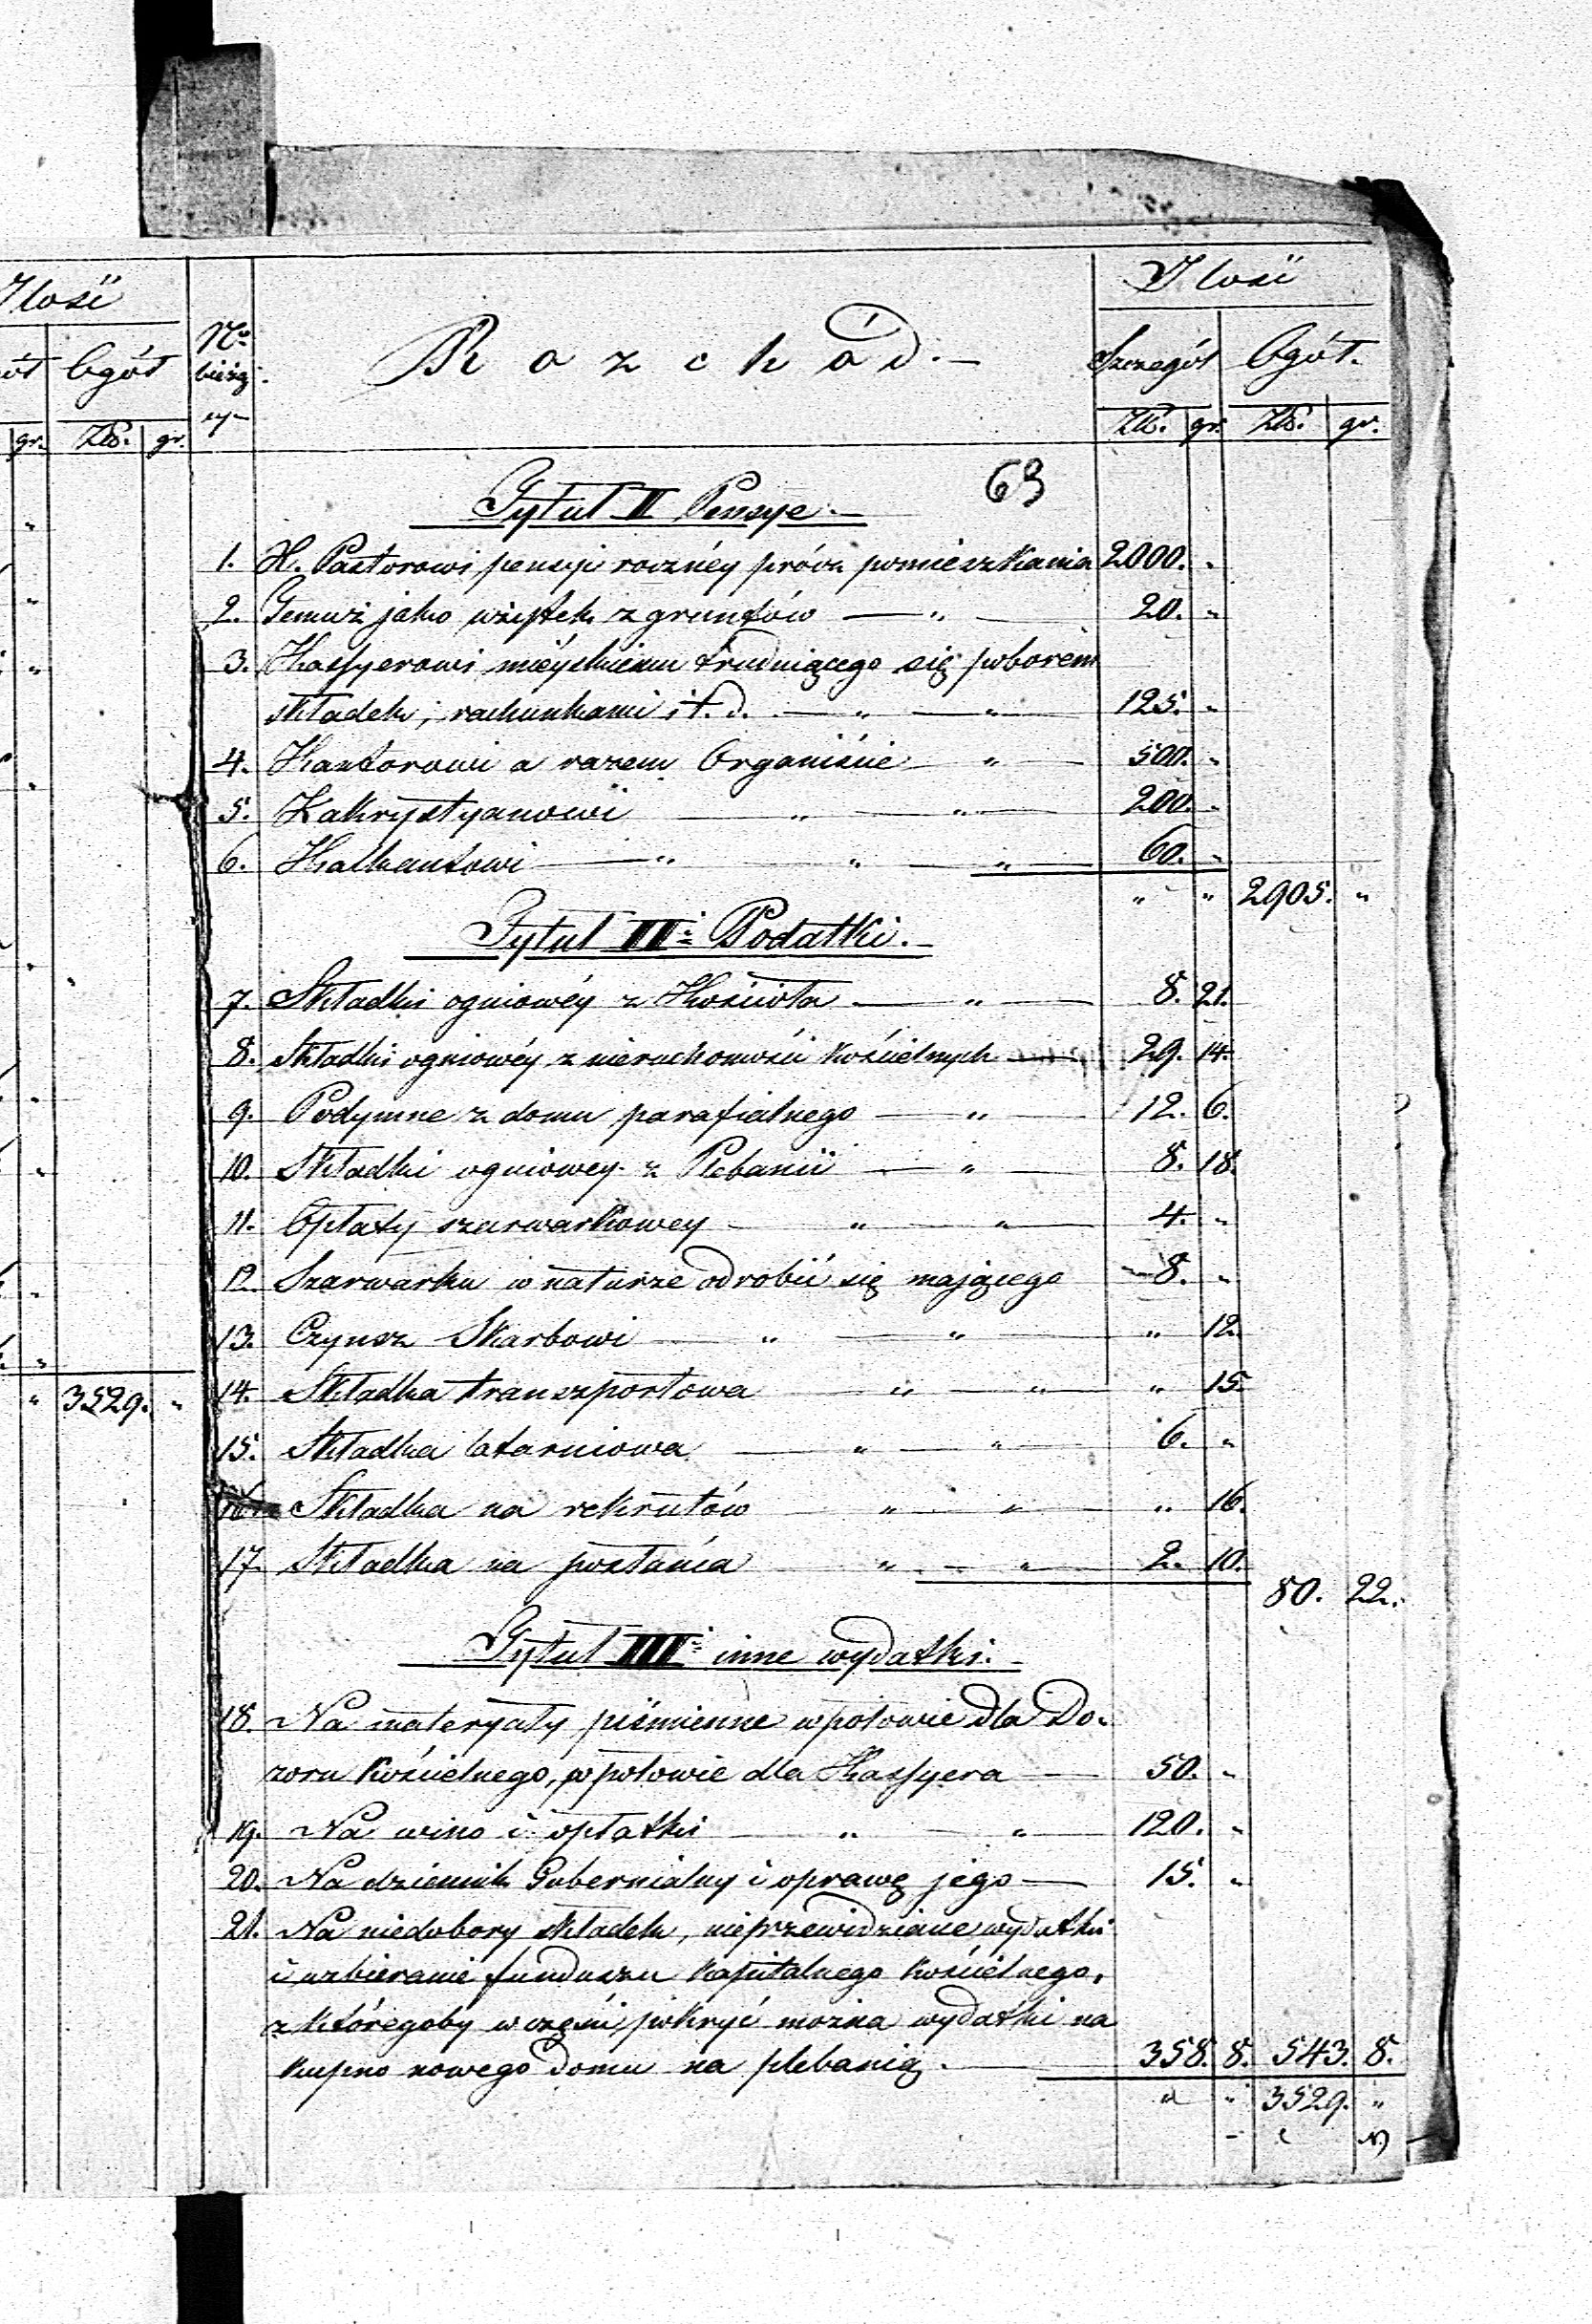 Ilość
Ogół
gr. Złp. gr.
3529. "
Nro bieżący
Rozchód.
Ilość
Szczegół Ogół.
Złp. gr. Złp. gr.
63
Tytuł II Pensye.
1. X. Pastorowi pensyi rocznéy prócz pomieszkania 2000. "
2. Temuż jako użytek z gruntów — " — 20. "
3. Kassyerowi miéyskiemu trudniącego się poborem
składek, rachunkami i t. d. — " — " — 125. "
4. Kantorowi a razem Organiście — " — 500. "
5. Zakrystyanowi — " — " — 200. "
6. Kalkantowi — " — " — " — 60. "
" " 2905. "
Tytuł II. Podatki.
7. Składki ogniowéy z Kościoła — " — 8. 21.
8. Składki ogniowéy z nieruchomości kościelnych — 29. 14.
9. Podymne z domu parafialnego — " — 12. 6.
10. Składki ogniowey z Plebanii — " — 8. 18.
11. Opłaty szarwarkowey — " — " — 4. "
12. Szarwarku w naturze odrobić się mającego — 8. "
13. Czynsz Skarbowi — " — " — " 12.
14. Składka transzportowa — " — " — " 15.
15. Składka latarniowa — " — " — 6. "
16. Składka na rekrutów — " — " — " 16.
17. Składka na " — " — 2. 10.
80. 22.
Tytuł III. inne wydatki.
18. Na materyały piśmienne w połowie dla Do-
zoru kościelnego, w połowie dla Kassyera — 50. "
19. Na wino i opłatki — " — " — 120. "
20. Na dziennik Gubernialny i oprawę jego — 15. "
21. Na niedobory składek, nieprzewidziane wydatki
i uzbieranie funduszu kapitalnego kościelnego,
z któregoby w części pokryć można wydatki na
kupno nowego domu na plebanię. — 358. 8. 543. 8.
" " 3529. "